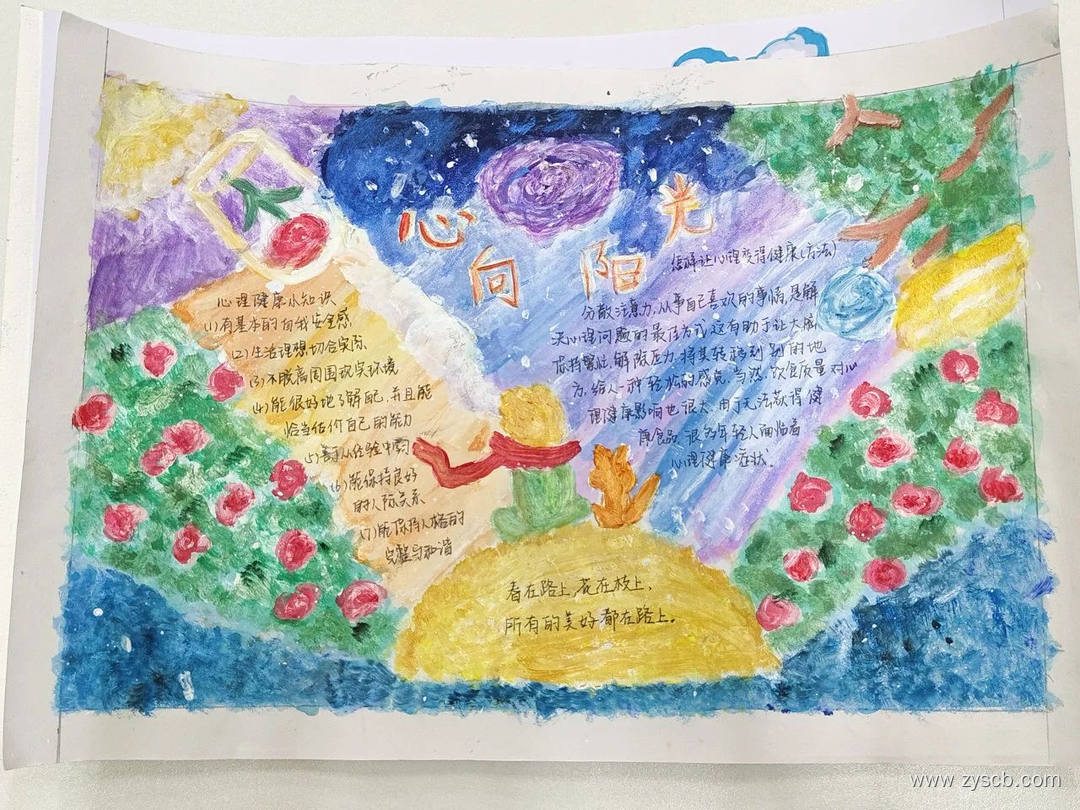 心向阳光
心理健康小知识
(1)有基本的自我安全感
(2)生活理想切合实际
(3)不脱离周围现实环境
(4)能很好地了解自己,并且能
恰当估价自己的能力
(5)善于从经验中学习
(6)能保持良好
的人际关系
(7)能保持人格的
完整与和谐
怎样让心理变得健康(方法)
分散注意力,从事自己喜欢的事情,是解
决心理问题的最佳方式,这有助于让大脑
保持警觉,解散压力,将其转移到别的地
方,给人一种轻松的感觉,当然,饮食质量对心
理健康影响也很大,由于无法获得健
康食品,很多年轻人面临着
心理健康症状。
春在路上,花在枝上,
所有的美好都在路上。
www.zyscb.com